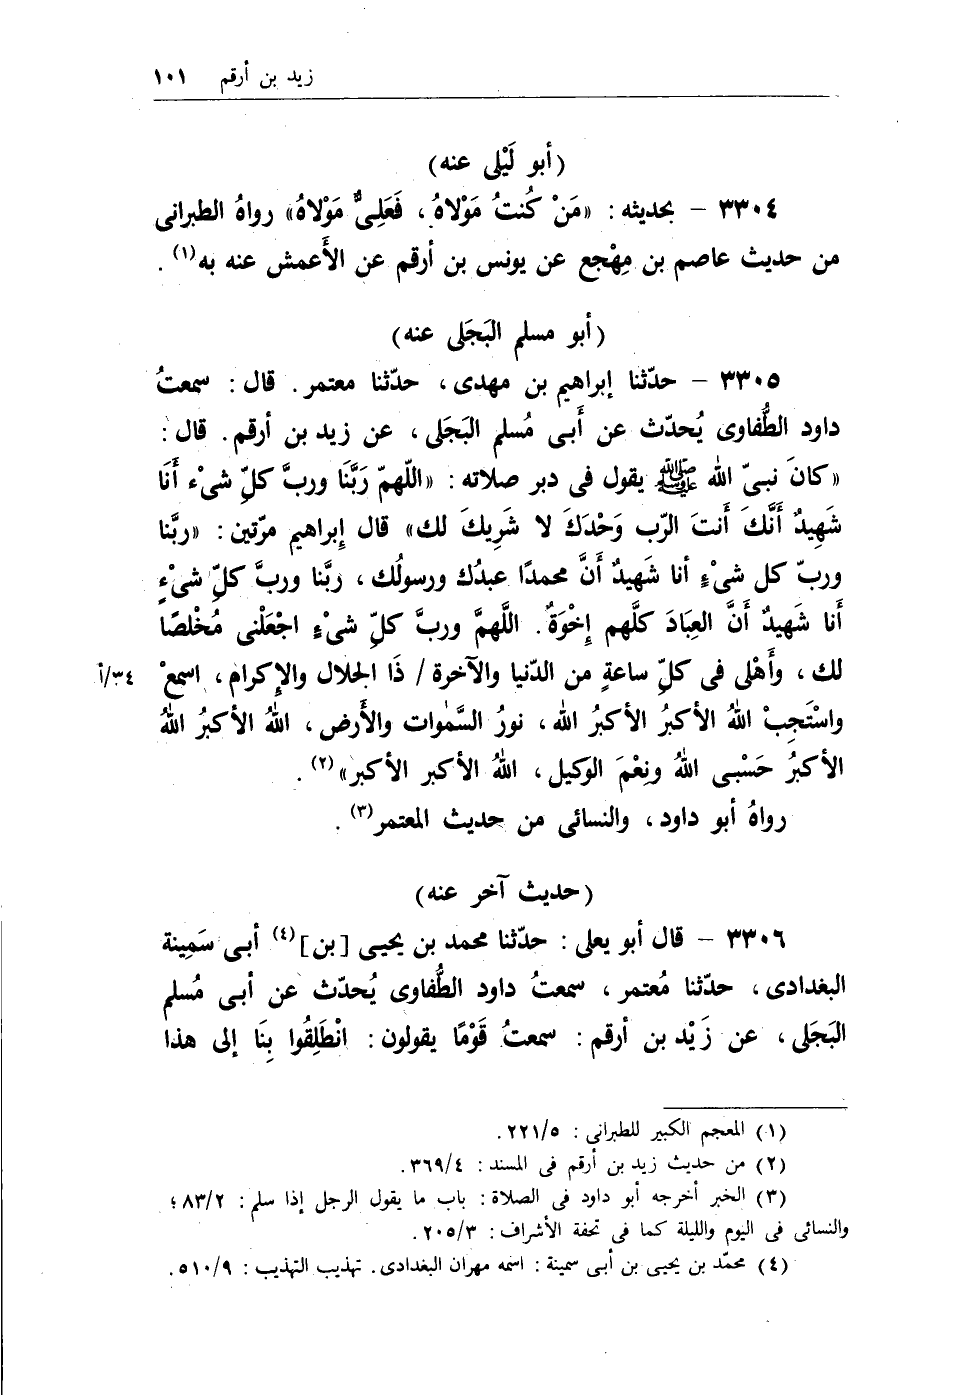 زيد بن أرقم ١٠١
(أبو لَيْلى عنه)
٣٣٠٤ - بحديثه: «مَنْ كُنتُ مَوْلاهُ، فَعَلِىٌّ مَوْلاهُ» رواهُ الطبرانى
من حديث عاصم بن مِهْجع عن يونس بن أرقم عن الأَعمش عنه به(١).
(أبو مسلم البَجَلى عنه)
٣٣٠٥ - حدّثنا إبراهيم بن مهدى، حدّثنا معتمر. قال: سمعتُ
داود الطُّفاوى يُحدّث عن أَبى مُسلم البَجَلى، عن زيد بن أرقم. قال:
«كانَ نبىّ الله ﷺ يقول فى دبر صلاته: «اللّهمّ رَبَّنَا وربَّ كلِّ شىْء أَنَا
شَهِيدٌ أَنَّكَ أَنتَ الرّب وَحْدَكَ لا شَرِيكَ لك» قال إبراهيم مرّتين: «ربَّنا
وربّ كل شىْءٍ أنا شَهيدٌ أَنَّ محمدًا عبدُك ورسولُك، ربَّنا وربَّ كلِّ شىْءٍ
أَنا شَهيدٌ أَنَّ العِبَادَ كلَّهم إِخْوَةٌ. اللَّهمَّ وربَّ كلِّ شىْءٍ اجْعَلْنى مُخْلصًا
لك، وأَهْلى فى كلِّ ساعةٍ من الدّنيا والآخرة / ذَا الجلال والإكرام، اسمعْ ٣٤/أ
واسْتَجِبْ اللهُ الأكبرُ الأكبرُ الله، نورُ السَّمٰوات والأَرض، اللهُ الأكبرُ اللهُ
الأكبرُ حَسْبى اللهُ ونِعْمَ الوكيل، اللهُ الأكبر الأكبر»(٢).
رواهُ أبو داود، والنسائى من حديث المعتمر(٣).
(حديث آخر عنه)
٣٣٠٦ - قال أبو يعلى: حدّثنا محمد بن يحيى [بن](٤) أبى سَمِينة
البغدادى، حدّثنا مُعتمر، سمعتُ داود الطُّفاوى يُحدّث عن أبى مُسلم
البَجَلى، عن زَيْد بن أرقم: سمعتُ قَوْمًا يقولون: انْطَلِقُوا بِنَا إلى هذا
(١) المعجم الكبير للطبرانى: ٢٢١/٥.
(٢) من حديث زيد بن أرقم فى المسند: ٣٦٩/٤.
(٣) الخبر أخرجه أبو داود فى الصلاة: باب ما يقول الرجل إذا سلم: ٨٣/٢؛
والنسائى فى اليوم والليلة كما فى تحفة الأشراف: ٢٠٥/٣.
(٤) محمّد بن يحيى بن أبى سمينة: اسمه مهران البغدادى. تهذيب التهذيب: ٥١٠/٩.